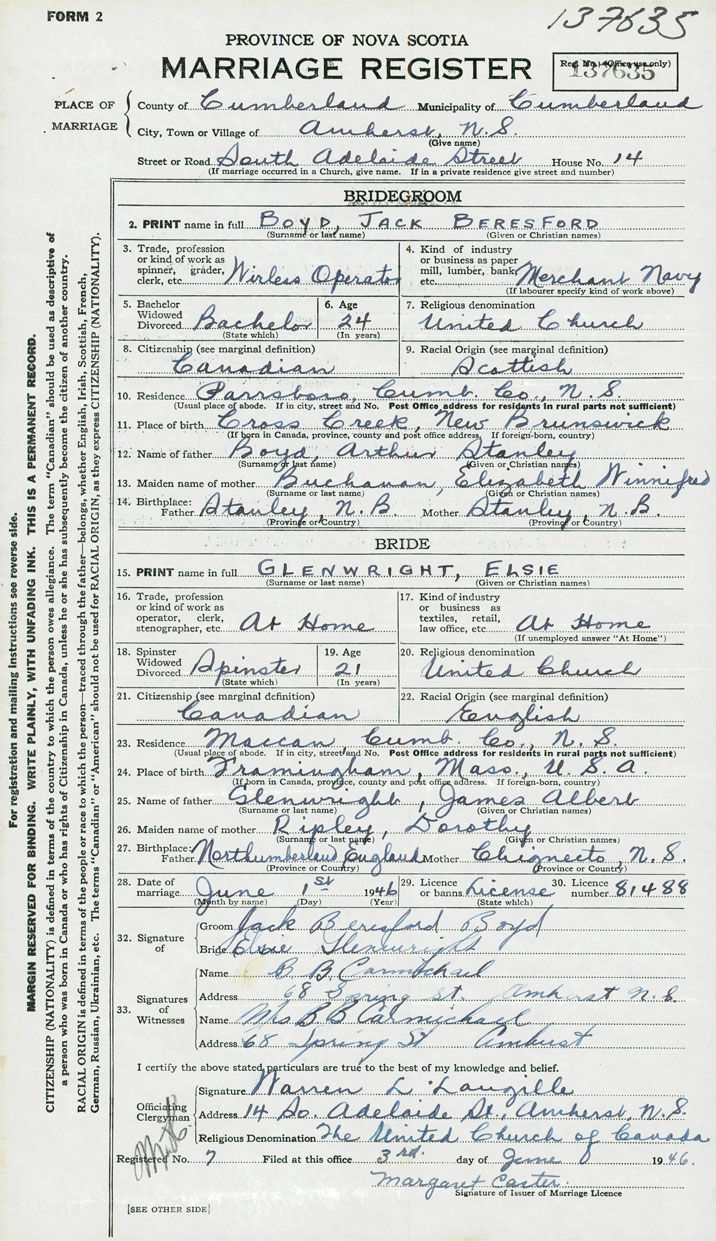 FORM 2
137635
PROVINCE OF NOVA SCOTIA
MARRIAGE REGISTER
Reg. No. (Office use only)
137635
PLACE OF MARRIAGE
County of Cumberland Municipality of Cumberland
City, Town or Village of Amherst, N.S.
(Give name)
Street or Road South Adelaide Street House No. 14
(If marriage occurred in a Church, give name. If in a private residence give street and number)
BRIDEGROOM
2. PRINT name in full BOYD, JACK BERESFORD
(Surname or last name) (Given or Christian names)
3. Trade, profession or kind of work as spinner, grader, clerk, etc. Wirless Operator
4. Kind of industry or business as paper mill, lumber, bank, etc. Merchant Navy
(If labourer specify kind of work above)
5. Bachelor Widowed Divorced Bachelor (State which)
6. Age 24 (In years)
7. Religious denomination United Church
8. Citizenship (see marginal definition) Canadian
9. Racial Origin (see marginal definition) Scottish
10. Residence Parrsboro, Cumb. Co., N.S.
(Usual place of abode. If in city, street and No. Post Office address for residents in rural parts not sufficient)
11. Place of birth Cross Creek, New Brunswick
(If born in Canada, province, county and post office address. If foreign-born, country)
12. Name of father Boyd, Arthur Stanley
(Surname or last name) (Given or Christian names)
13. Maiden name of mother Buchanan, Elizabeth Winnifred
(Surname or last name) (Given or Christian names)
14. Birthplace: Father Stanley, N.B. Mother Stanley, N.B.
(Province or Country) (Province or Country)
BRIDE
15. PRINT name in full GLENWRIGHT, ELSIE
(Surname or last name) (Given or Christian names)
16. Trade, profession or kind of work as operator, clerk, stenographer, etc. At Home
17. Kind of industry or business as textiles, retail, law office, etc. At Home
(If unemployed answer "At Home")
18. Spinster Widowed Divorced Spinster (State which)
19. Age 21 (In years)
20. Religious denomination United Church
21. Citizenship (see marginal definition) Canadian
22. Racial Origin (see marginal definition) English
23. Residence Maccan, Cumb. Co., N.S.
(Usual place of abode. If in city, street and No. Post Office address for residents in rural parts not sufficient)
24. Place of birth Framingham, Mass., U.S.A.
(If born in Canada, province, county and post office address. If foreign-born, country)
25. Name of father Glenwright, James Albert
(Surname or last name) (Given or Christian names)
26. Maiden name of mother Ripley, Dorothy
(Surname or last name) (Given or Christian names)
27. Birthplace: Father Northumberland England Mother Chignecto, N.S.
(Province or Country) (Province or Country)
28. Date of marriage June 1st 1946
(Month by name) (Day) (Year)
29. Licence or banns License (State which)
30. Licence number 81488
32. Signature of
Groom Jack Beresford Boyd
Bride Elsie Glenwright
33. Signatures of Witnesses
Name B B Carmichael
Address 68 Spring St. Amherst N.S.
Name Mrs B B Carmichael
Address 68 Spring St Amherst
I certify the above stated particulars are true to the best of my knowledge and belief.
Officiating Clergyman
Signature Warren L. Langille
Address 14 So. Adelaide St., Amherst, N.S.
Religious Denomination The United Church of Canada
Registered No. 7 Filed at this office 3rd. day of June 1946.
Margaret Carter
Signature of Issuer of Marriage Licence
[SEE OTHER SIDE]
For registration and mailing instructions see reverse side.
MARGIN RESERVED FOR BINDING. WRITE PLAINLY, WITH UNFADING INK. THIS IS A PERMANENT RECORD.
CITIZENSHIP (NATIONALITY) is defined in terms of the country to which the person owes allegiance. The term "Canadian" should be used as descriptive of
a person who was born in Canada or who has rights of Citizenship in Canada, unless he or she has subsequently become the citizen of another country.
RACIAL ORIGIN is defined in terms of the people or race to which the person—traced through the father—belongs, whether English, Irish, Scottish, French,
German, Russian, Ukrainian, etc. The terms "Canadian" or "American" should not be used for RACIAL ORIGIN, as they express CITIZENSHIP (NATIONALITY).